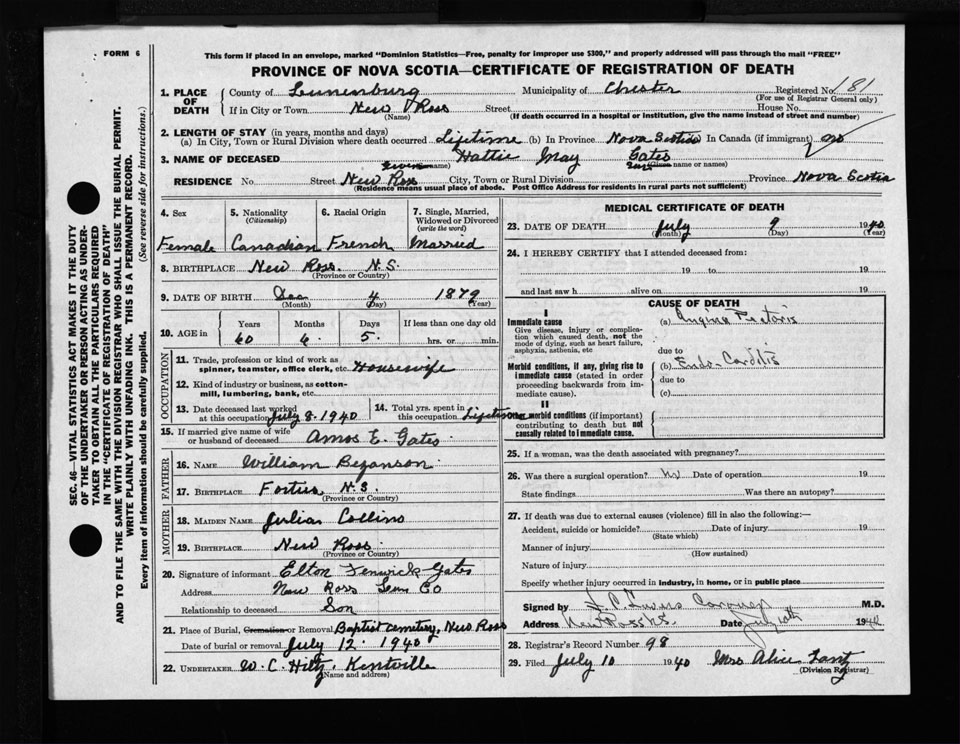 FORM 6
This form if placed in an envelope, marked "Dominion Statistics—Free, penalty for improper use $300," and properly addressed will pass through the mail "FREE"
PROVINCE OF NOVA SCOTIA—CERTIFICATE OF REGISTRATION OF DEATH
SEC. 46—VITAL STATISTICS ACT MAKES IT THE DUTY
OF THE UNDERTAKER OR PERSON ACTING AS UNDER-
TAKER TO OBTAIN ALL THE PARTICULARS REQUIRED
IN THE "CERTIFICATE OF REGISTRATION OF DEATH"
AND TO FILE THE SAME WITH THE DIVISION REGISTRAR WHO SHALL ISSUE THE BURIAL PERMIT.
WRITE PLAINLY WITH UNFADING INK. THIS IS A PERMANENT RECORD.
Every item of information should be carefully supplied. (See reverse side for instructions.)
1. PLACE OF DEATH County of Lunenburg Municipality of Chester Registered No. 181
(For use of Registrar General only)
If in City or Town New Ross Street House No.
(Name) (If death occurred in a hospital or institution, give the name instead of street and number)
2. LENGTH OF STAY (in years, months and days)
(a) In City, Town or Rural Division where death occurred Lifetime (b) In Province Nova Scotia In Canada (if immigrant)
3. NAME OF DECEASED Hattie May Gates
name) (Given name or names)
RESIDENCE No. Street New Ross City, Town or Rural Division Province Nova Scotia
(Residence means usual place of abode. Post Office Address for residents in rural parts not sufficient)
4. Sex
Female
5. Nationality
(Citizenship)
Canadian
6. Racial Origin
French
7. Single, Married, Widowed or Divorced
(write the word)
Married
8. BIRTHPLACE New Ross. N.S.
(Province or Country)
9. DATE OF BIRTH Dec 4 1879
(Month) (Day) (Year)
10. AGE in Years Months Days If less than one day old
60 6. 5. hrs. or min.
OCCUPATION
11. Trade, profession or kind of work as spinner, teamster, office clerk, etc. Housewife
12. Kind of industry or business, as cotton-mill, lumbering, bank, etc.
13. Date deceased last worked at this occupation July 8. 1940
14. Total yrs. spent in this occupation Lifetime
15. If married give name of wife or husband of deceased Amos E. Gates
FATHER
16. NAME William Bezanson
17. BIRTHPLACE N.S.
(Province or Country)
MOTHER
18. MAIDEN NAME Julian Collins
19. BIRTHPLACE New Ross
(Province or Country)
20. Signature of informant Elton Fenwick Gates
Address New Ross Lun Co
Relationship to deceased Son
21. Place of Burial, Cremation or Removal Baptist Cemetery, New Ross
Date of burial or removal July 12. 1940
22. UNDERTAKER W. C. Hiltz. Kentville
(Name and address)
MEDICAL CERTIFICATE OF DEATH
23. DATE OF DEATH July 9 1940
(Month) (Day) (Year)
24. I HEREBY CERTIFY that I attended deceased from:
19 to 19
and last saw h alive on 19
CAUSE OF DEATH
I
Immediate cause
Give disease, injury or complication which caused death, not the mode of dying, such as heart failure, asphyxia, asthenia, etc
(a) Angina Pectoris
due to
Morbid conditions, if any, giving rise to immediate cause (stated in order proceeding backwards from immediate cause).
(b) Endo-Carditis
due to
(c)
II
Other morbid conditions (if important) contributing to death but not causally related to immediate cause.
25. If a woman, was the death associated with pregnancy?
26. Was there a surgical operation? No Date of operation 19
State findings Was there an autopsy?
27. If death was due to external causes (violence) fill in also the following:—
Accident, suicide or homicide? Date of injury 19
(State which)
Manner of injury
(How sustained)
Nature of injury
Specify whether injury occurred in industry, in home, or in public place
Signed by M.D.
Address New Ross N.S. Date July 10th 1940
28. Registrar's Record Number 98
29. Filed July 10 1940 Mrs Alice Lantz
(Division Registrar)